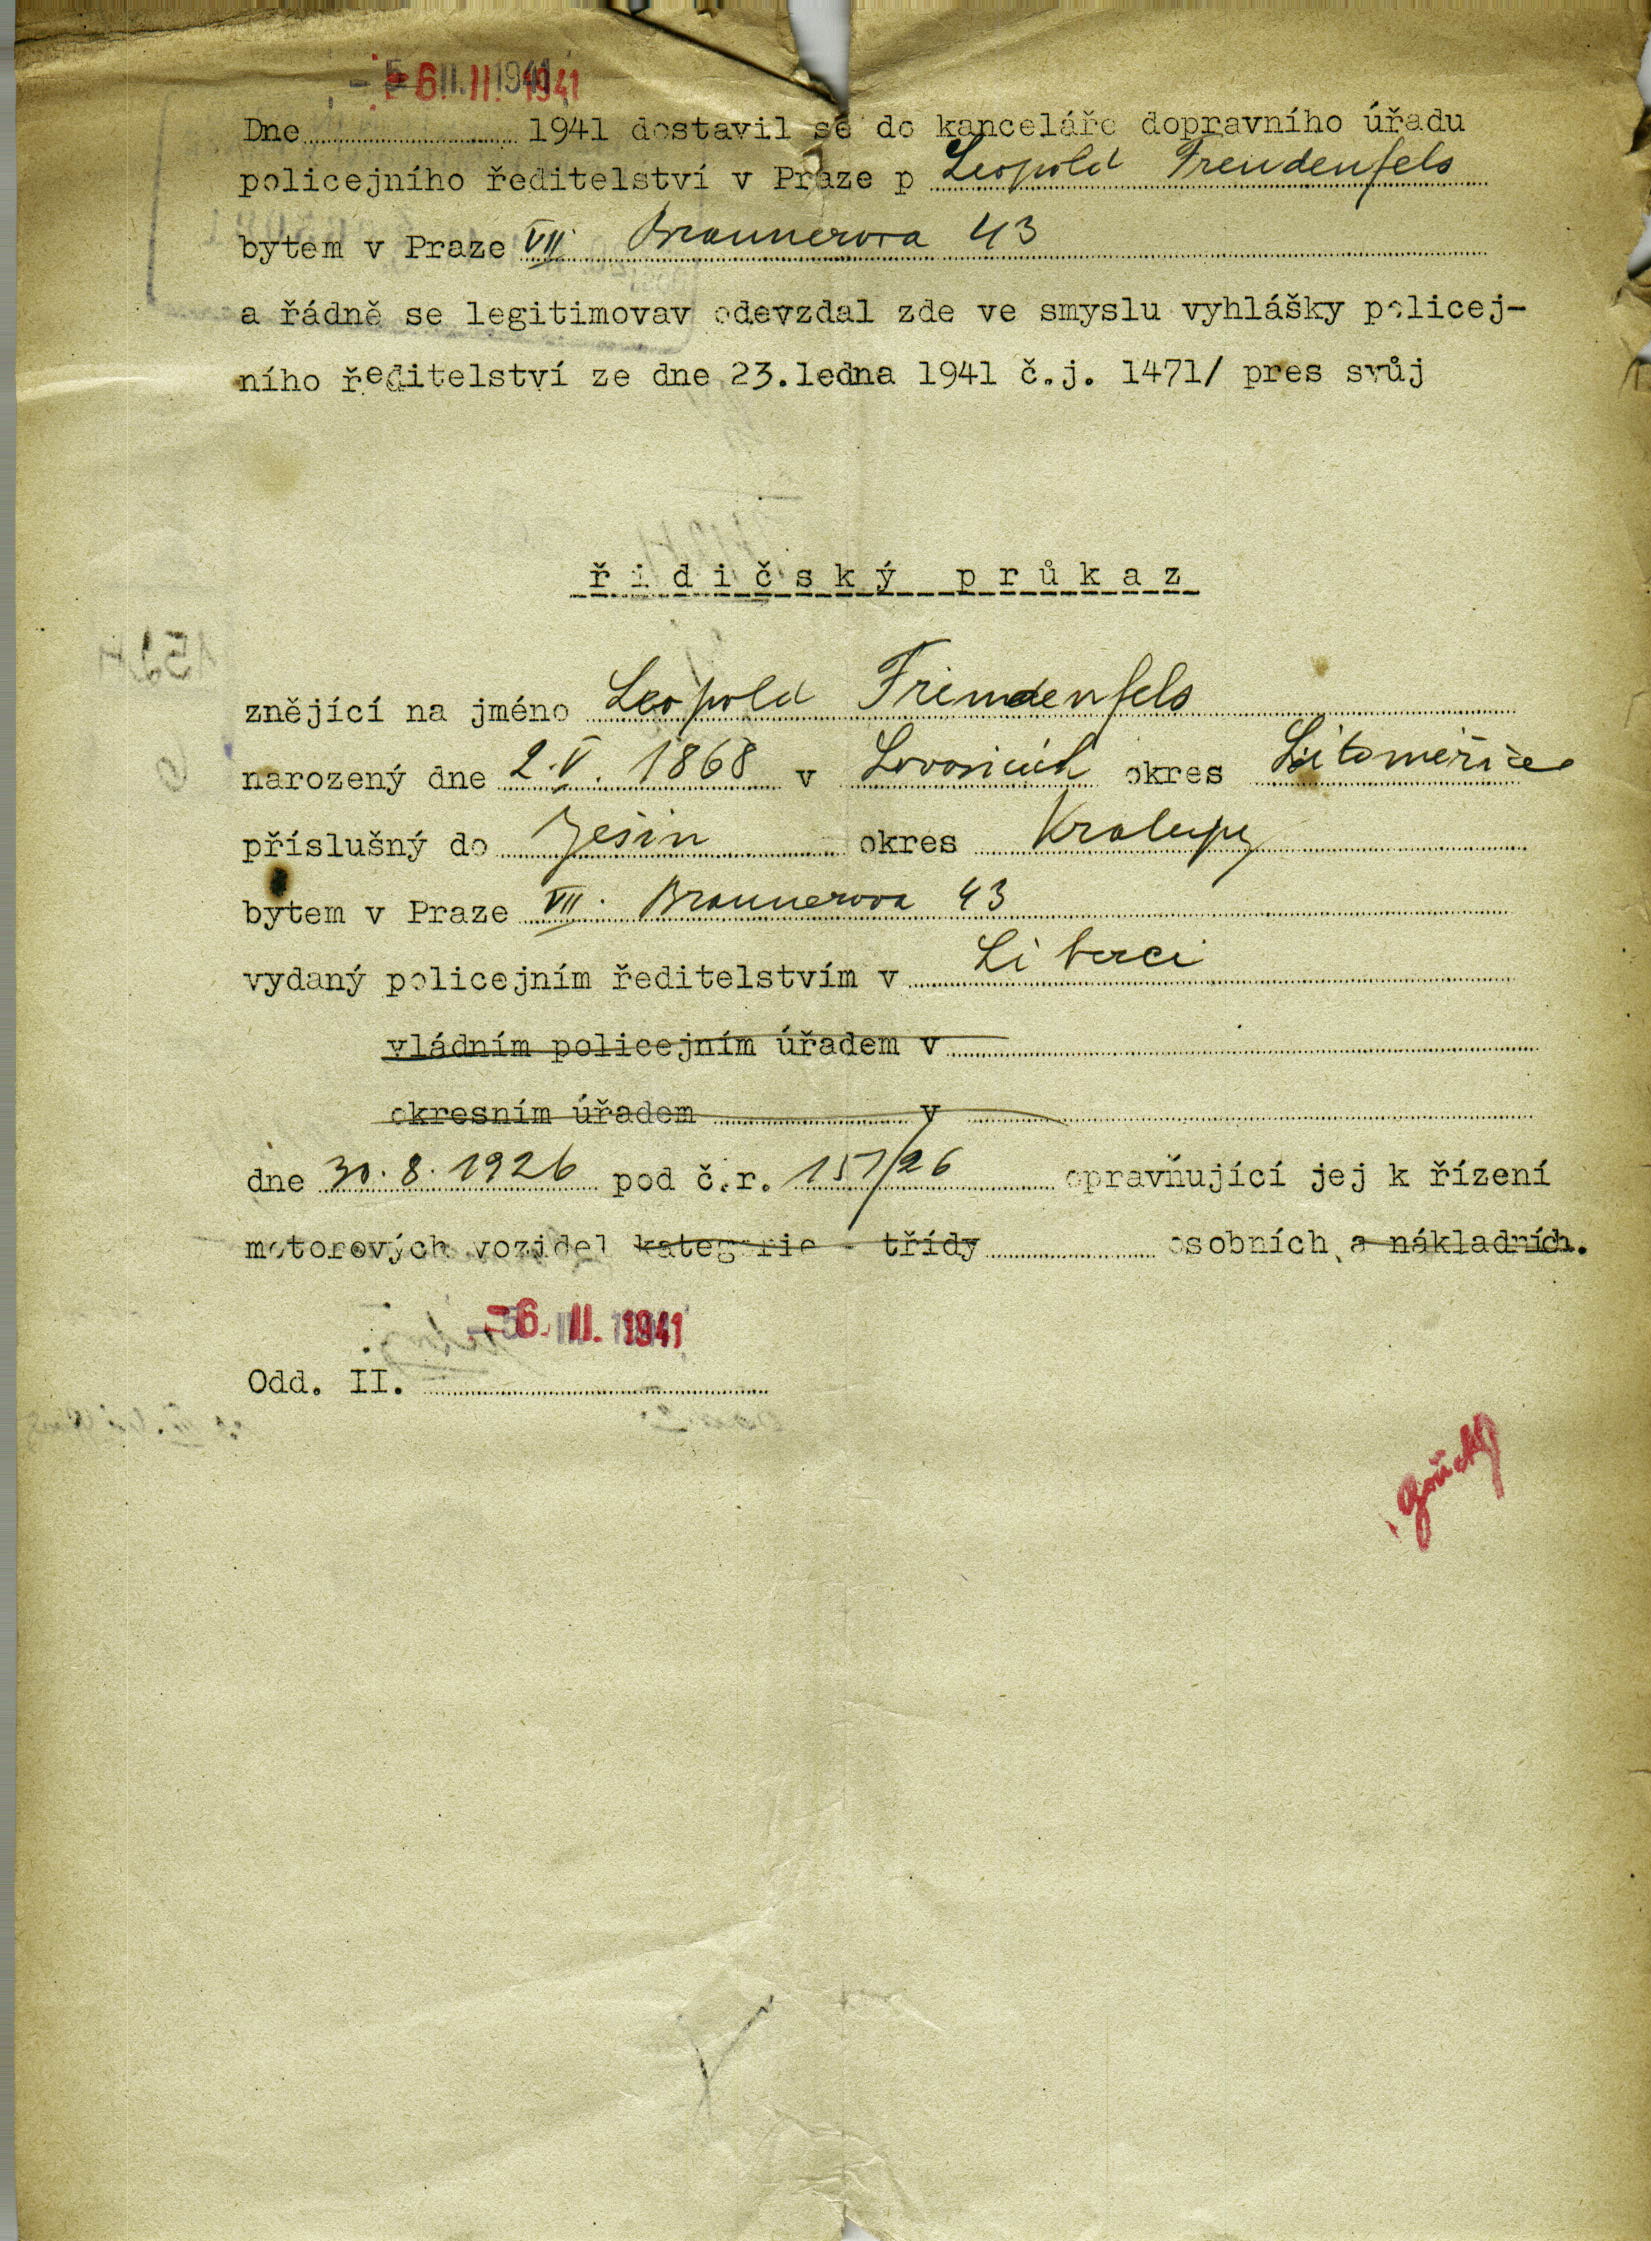 - 6. II. 1941
Dne 1941 dostavil se do kanceláře dopravního úřadu
policejního ředitelství v Praze p Leopold Freudenfels
bytem v Praze VII. Braunerova 43
a řádně se legitimovav odevzdal zde ve smyslu vyhlášky policej-
ního ředitelství ze dne 23.ledna 1941 č.j. 1471/ pres svůj
řidičský průkaz
znějící na jméno Leopold Freudenfels
narozený dne 2.V. 1868 v Lovosicích okres Litoměřice
příslušný do Ješin okres Kralupy
bytem v Praze VII. Braunerova 43
vydaný policejním ředitelstvím v Liberci
vládním policejním úřadem v
okresním úřadem v
dne 30.8.1926 pod č.r. 157/26 opravňující jej k řízení
motorových vozidel kategorie - třídy osobních a nákladních.
- 6. II. 1941
Odd. II.